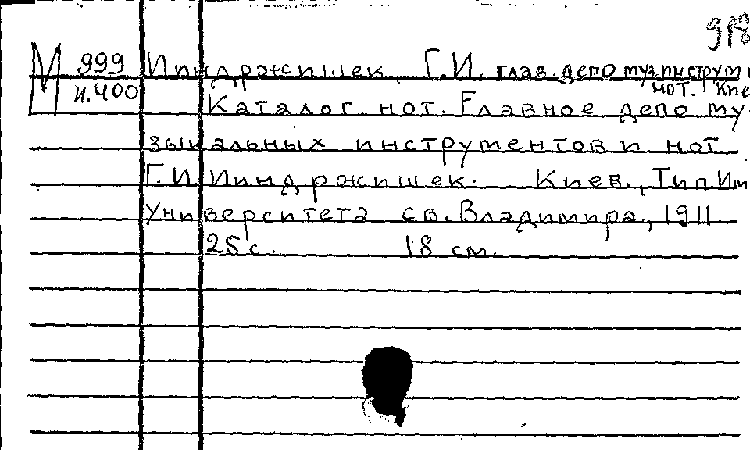 918
М 999 Индржишек Г.И. глав. депо муз. инструм
И.400 нот. Кие
Каталог нот. Главное депо му-
зыкальных инструментов и нот
Г.И Индржишек. Киев., Тип Им
университета св. Владимира, 1911
25 с. 18 см.